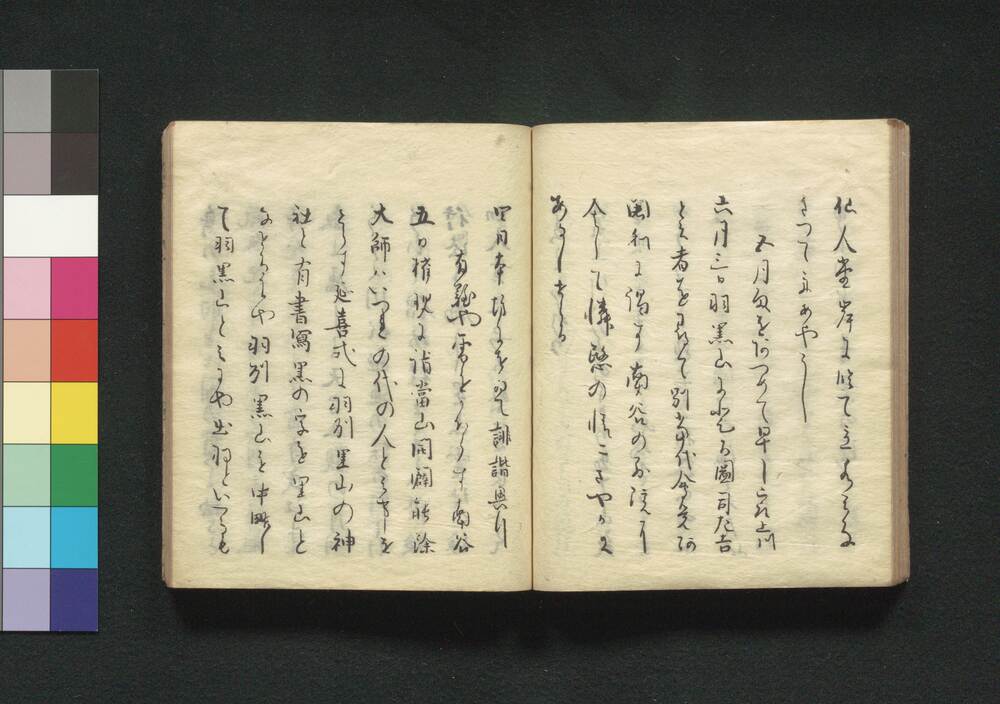 仙人堂岸に臨て立水みなき
つて舟あやうし
五月雨をあつめて早し最上川
六月三日羽黒山に登る圖司左吉
と云者を尋て別當代會覚阿
闍利に謁す南谷の別院に
舎して憐愍の情こまやかに
あるしせらる
四日本坊にをゐて誹諧興行
有難や雪をかほらす南谷
五日権現に詣當山開闢能除
大師はいつれの代の人と云事を
しらす延喜式に羽州里山の神
社と有書寫黒の字を里山と
なせるにや羽州黒山を中略し
て羽黒山と云にや出羽といへるも